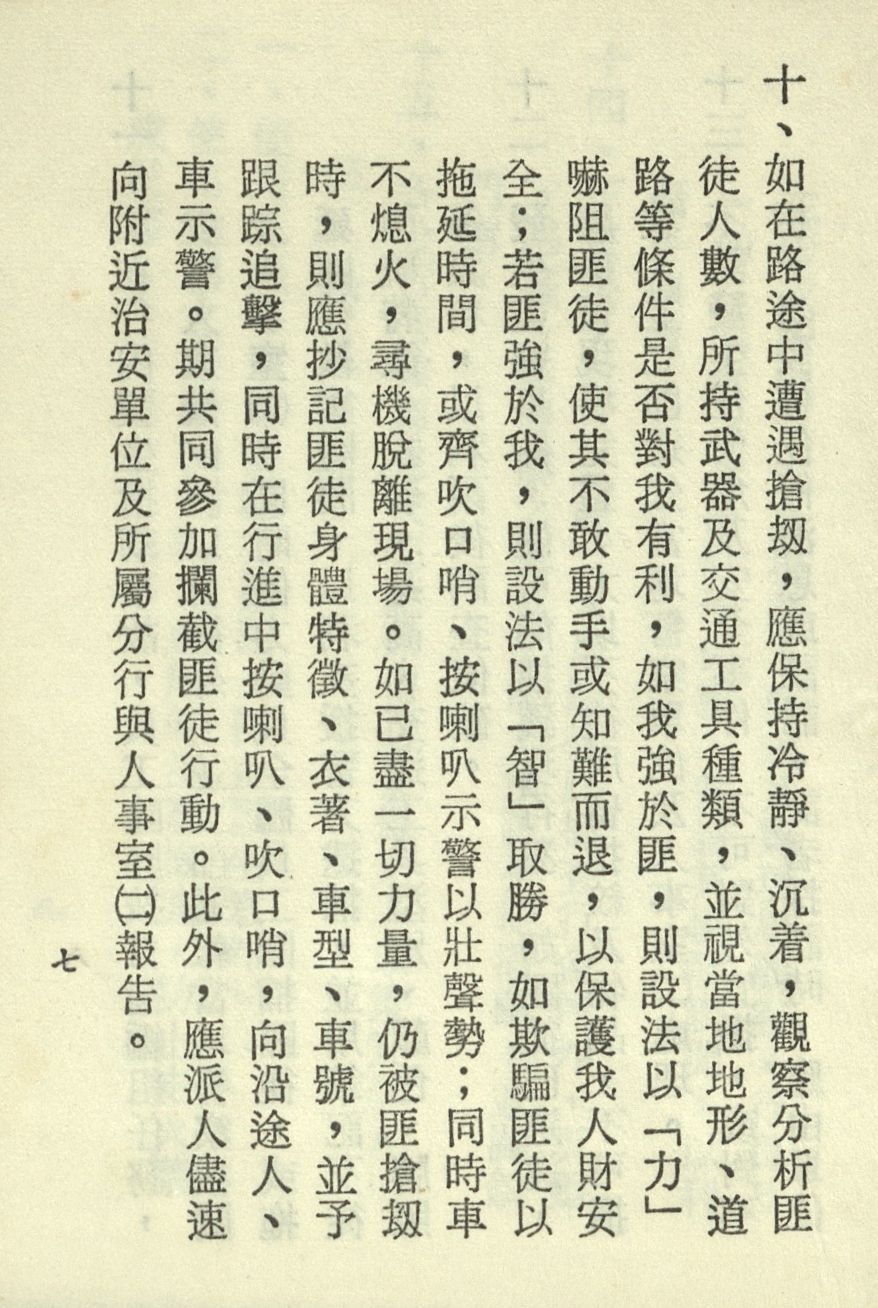 十、如在路途中遭遇搶刼，應保持冷靜、沉着，觀察分析匪
徒人數，所持武器及交通工具種類，並視當地地形、道
路等條件是否對我有利，如我強於匪，則設法以「力」
嚇阻匪徒，使其不敢動手或知難而退，以保護我人財安
全；若匪強於我，則設法以「智」取勝，如欺騙匪徒以
拖延時間，或齊吹口哨、按喇叭示警以壯聲勢；同時車
不熄火，尋機脫離現場。如已盡一切力量，仍被匪搶刼
時，則應抄記匪徒身體特徵、衣著、車型、車號，並予
跟踪追擊，同時在行進中按喇叭、吹口哨，向沿途人、
車示警。期共同參加攔截匪徒行動。此外，應派人儘速
向附近治安單位及所屬分行與人事室㈡報告。
七